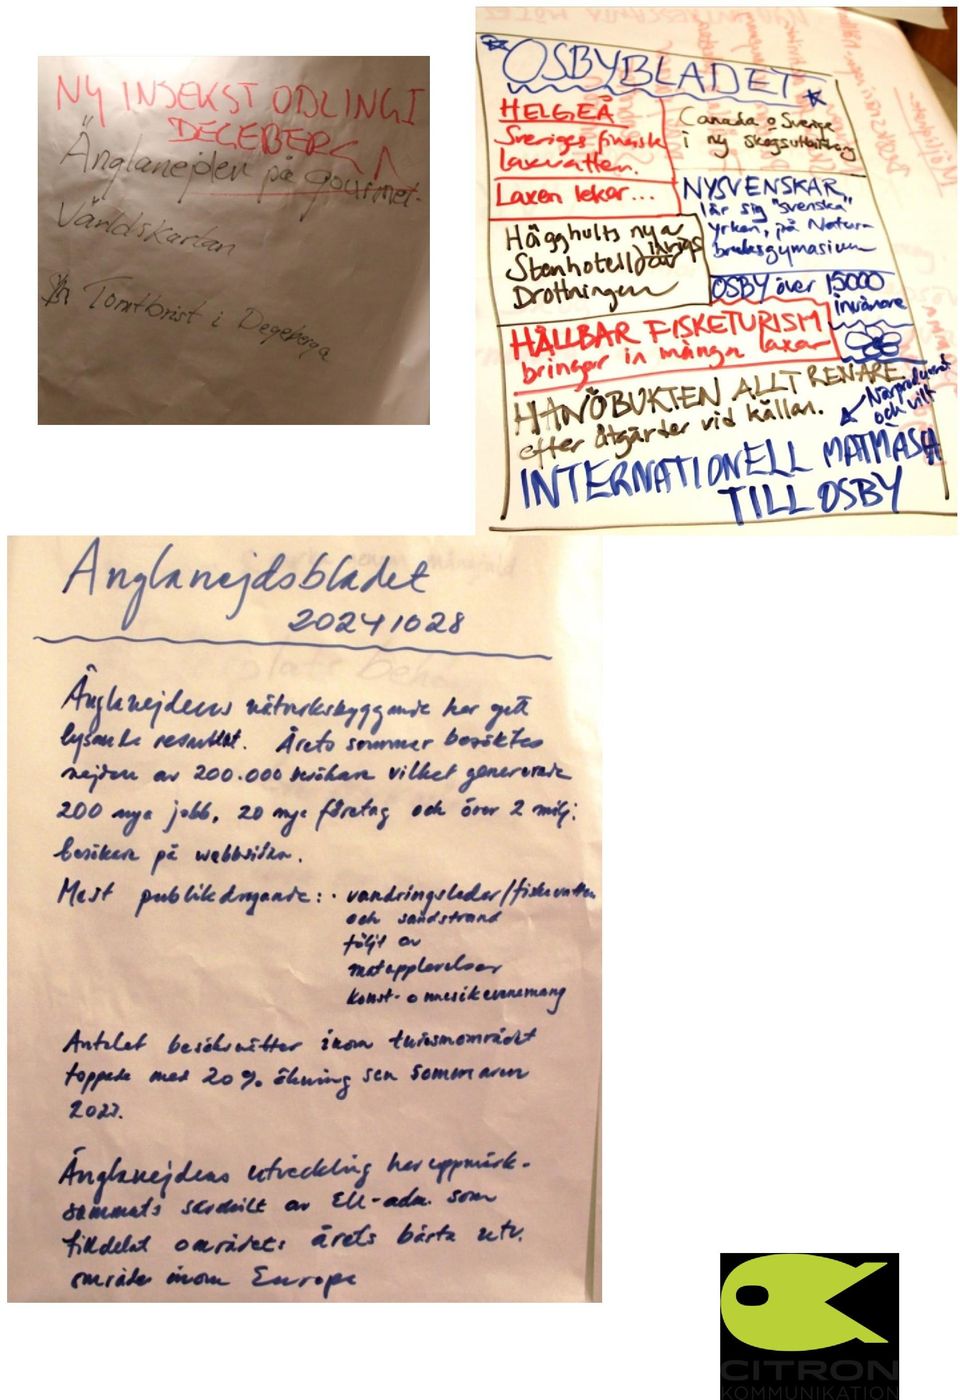 NY INSEKST ODLING I
DEGEBERGA
Änglanejden på gourmet-
världskartan
Tomtbrist i Degeberga
OSBYBLADET
HELGEÅ
Sveriges finaste
laxvatten.
Laxen leker...
Canada o Sverige
i ny skogsutbildning
NYSVENSKAR
lär sig "svenska"
yrken, på Natur
bruksgymasium
Hägghults nya
Stenhotell
Drottningen
OSBY över 15000
invånare
HÅLLBAR FISKETURISM
bringar in många laxar
HANÖBUKTEN ALLT RENARE
efter åtgärder vid källan.
Närproducerat
och vilt
INTERNATIONELL MATMÄSSA
TILL OSBY
Änglanejdsbladet
20241028
Änglanejdens nätverksbyggande har gett
lysande resultat. Årets sommar besöktes
nejden av 200.000 besökare vilket genererade
200 nya jobb, 20 nya företag och över 2 milj.
besökare på webbsidan.
Mest publikdragande: · vandringsleder/fiskevatten
och sandstrand
följt av
matupplevelser
konst- o musikevenemang
Antalet besöksnätter inom turismområdet
toppade med 20% ökning sen sommaren
2023.
Änglanejdens utveckling har uppmärk-
sammats särskilt av EU-adm. som
tilldelat området årets bästa utv.
område inom Europa
CITRON
KOMMUNIKATION